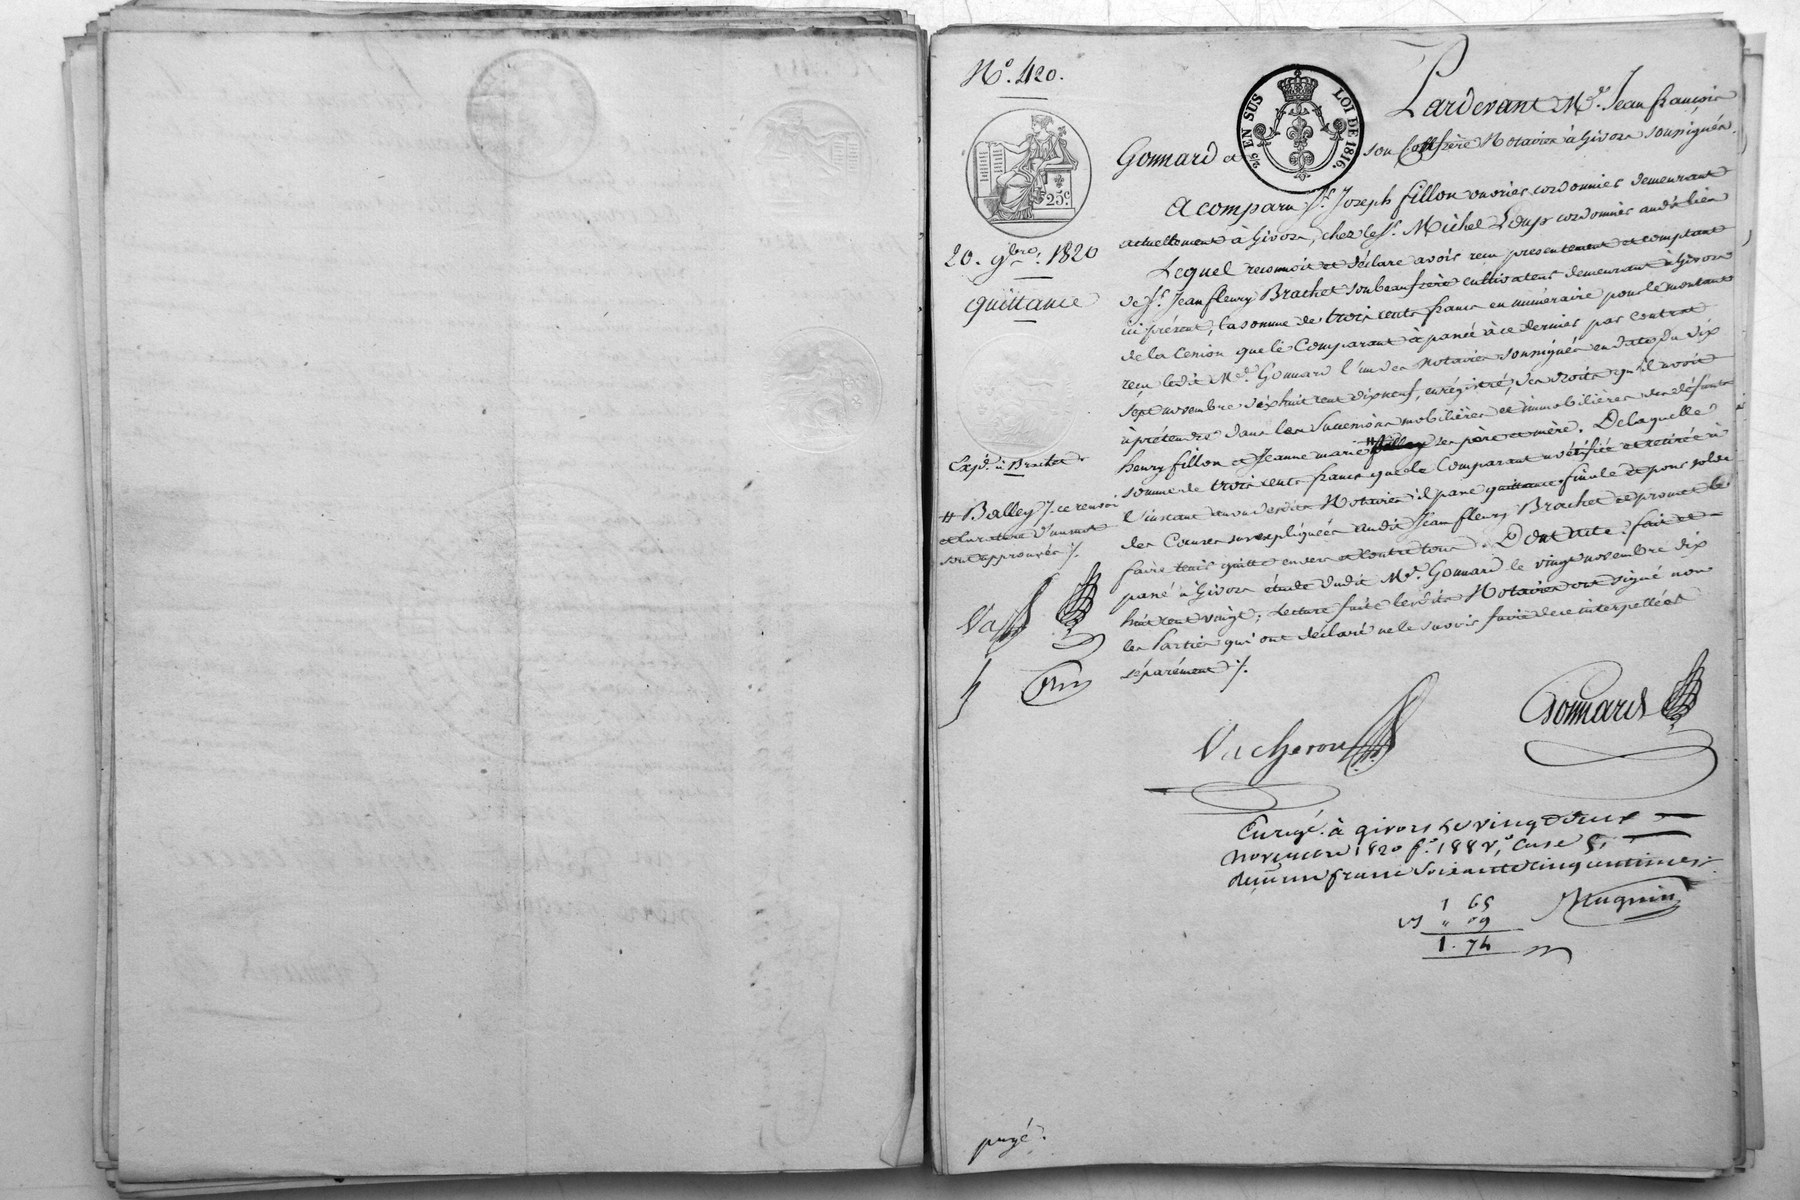 N.º 420.
2/5 EN SUS LOI DE 1816.
25.c
20. 9bre. 1820
quittance
Expd. à Brachet
# Balley /. ce renvoi
et la rature d'un mot
sont approuvés /.
Va
Pardevant Me. Jean françois
Gonnard et son Confrère Notaires à Givors soussignés.
A comparu Sr. Joseph fillon ouvrier cordonnier demeurant
actuellement à Givors, chez le Sr. Michel Loup cordonnier audit lieu
Lequel reconnoit et déclare avoir reçu présentement et comptant
de Sr. Jean fleury Brachet son beaufrère cultivateur demeurant à Givors
ici présent, la somme de trois cents francs en numéraire pour le montant
de la Cession que le Comparant à passé à ce dernier par contrat
reçu ledit Me. Gonnard l'un des Notaires soussignés en date du dix
sept novembre dix huit cent dix neuf, enrégistré, des droits qu'il avoit
à prétendre dans les Successions mobilières et immobilières des défunts
henry fillon et Jeanne marie # ses père et mère. De laquelle
somme de trois cents francs que le Comparant a vérifiée et retirée à
l'instant au vu desdits Notaires il passe quittance finale et pour solde
des Causes sus expliquées audit Jean fleury Brachet et promet le
faire tenir quitte envers et contre tous. Dont acte: fait et
passé à Givors étude dudit Me. Gonnard le vingt novembre dix
huit cent vingt; Lecture faite lesdits Notaires ont signé non
les Parties qui ont déclaré ne le savoir faire de ce interpellées
séparément /.
Vacheron
Gonnard
Enregé. à givors le vingt deux
novembre 1820 fo. 188 vo. Case 8.
reçu un franc soixante cinq centimes
1 65
" 09
1. 74
payé.